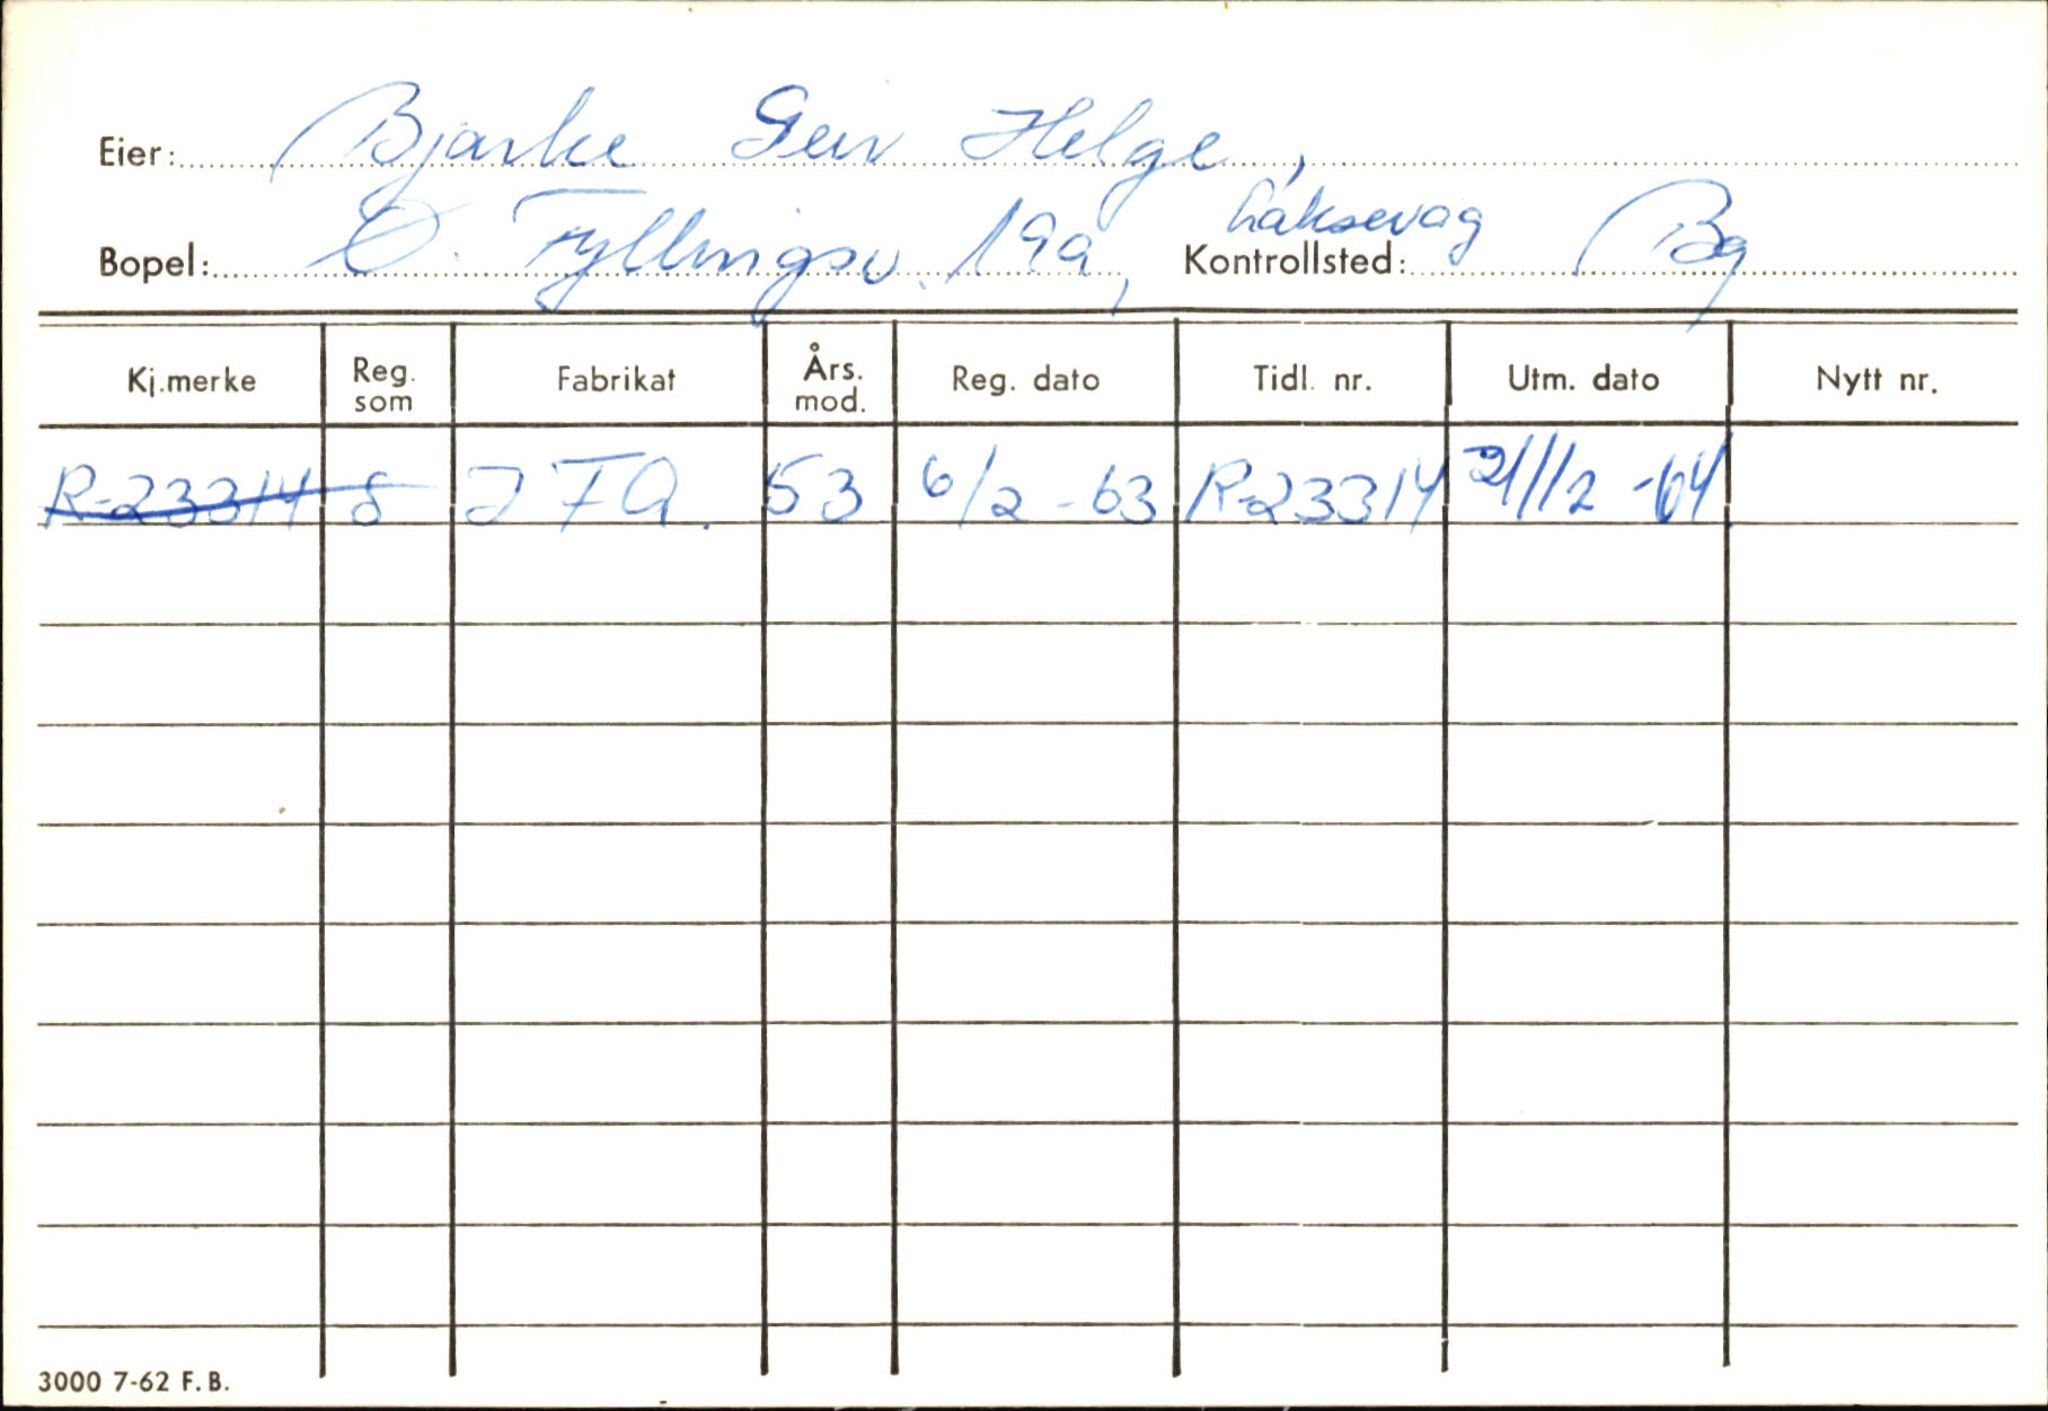 Eier: Bjarke Geir Helge,
Bopel: O. Fyllingsv. 19a, Laksevåg Kontrollsted: Bg
Kj.merke Reg. som Fabrikat Års. mod. Reg. dato Tidl. nr. Utm. dato Nytt nr.
R-23314 8 IFA. 53 6/2-63 R-23314 21/12-64
3000 7-62 F.B.